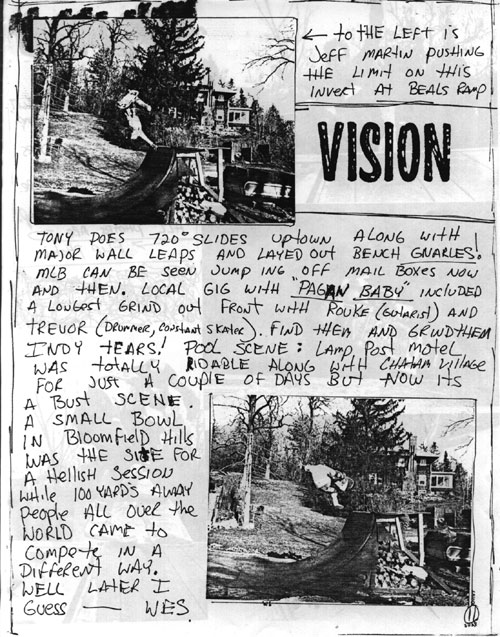 ← to THE LEFT is
JEFF MARTIN PUSHING
THE LIMIT ON THIS
INVERT AT BEALS RAMP
VISION
TONY DOES 720° SLIDES UPTOWN ALONG WITH
MAJOR WALL LEAPS AND LAYED OUT BENCH GNARLES!
MLB CAN BE SEEN JUMPING OFF MAIL BOXES NOW
AND THEN. LOCAL GIG WITH "PAGAN BABY" INCLUDED
A LONGEST GRIND OUT FRONT WITH ROUKE (GUTARIST) AND
TREVOR (DRUMMER, CONSTANT SKATER). FIND THEM AND GRINDTHEM
INDY TEARS! POOL SCENE: LAMP POST MOTEL
WAS totally RIDABLE ALONG WITH CHATAM VILLAGE
FOR JUST A COUPLE OF DAYS BUT NOW ITS
A BUST SCENE.
A SMALL BOWL
IN Bloomfield Hills
WAS THE SITE FOR
A HELLISH SESSION
While 100 YARDS AWAY
People ALL OVER the
WORLD CAME to
Compete IN A
DIFFERENT WAY.
WELL LATER I
GUESS — WES